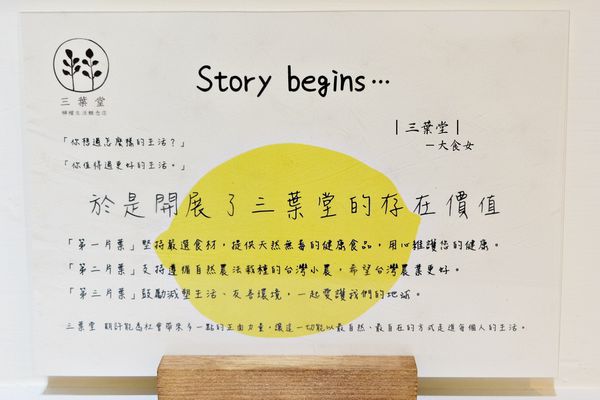 Story begins…
三葉堂
檸檬生活概念店
|三葉堂|
-大食女
「你想過怎麼樣的生活？」
「你值得過更好的生活。」
於是開展了三葉堂的存在價值
「第一片葉」堅持嚴選食材，提供天然無毒的健康食品，用心維護您的健康。
「第二片葉」支持遵循自然農法栽種的台灣小農，希望台灣農業更好。
「第三片葉」鼓勵減塑生活、友善環境，一起愛護我們的地球。
三葉堂 期許能為社會帶來多一點的正面力量，讓這一切能以最自然、最自在的方式走進每個人的生活。